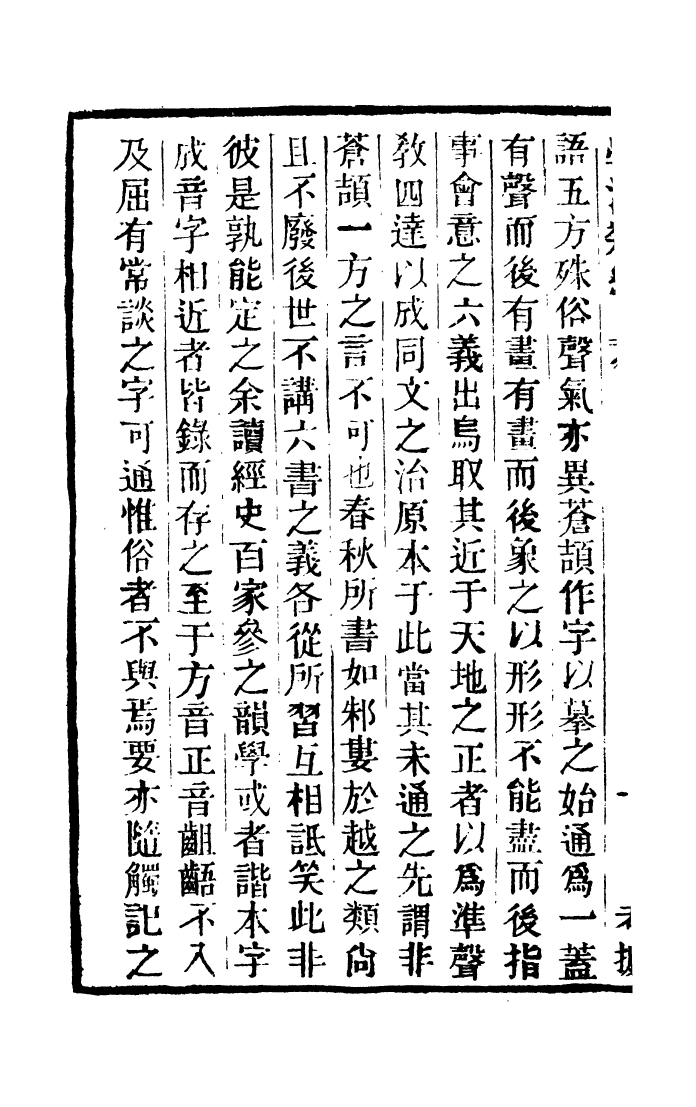 語五方殊俗聲氣亦異蒼頡作字以摹之始通爲一蓋
有聲而後有畫有畫而後象之以形形不能盡而後指
事會意之六義出焉取其近于天地之正者以爲準聲
敎四達以成同文之治原本于此當其未通之先謂非
蒼頡一方之言不可也春秋所書如邾婁於越之類尙
且不廢後世不講六書之義各從所習互相詆笑此非
彼是孰能定之余讀經史百家參之韻學或者諧本字
成音字相近者皆錄而存之至于方音正音齟齬不入
及屈有常談之字可通惟俗者不與焉要亦隨觸記之